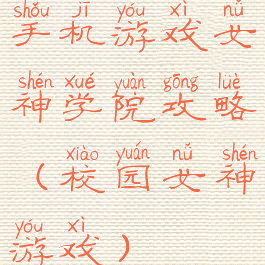 shǒu jī yóu xì nǚ
手机游戏女
shén xué yuàn gōng lüè
神学院攻略
xiào yuán nǚ shén
（校园女神
yóu xì
游戏）